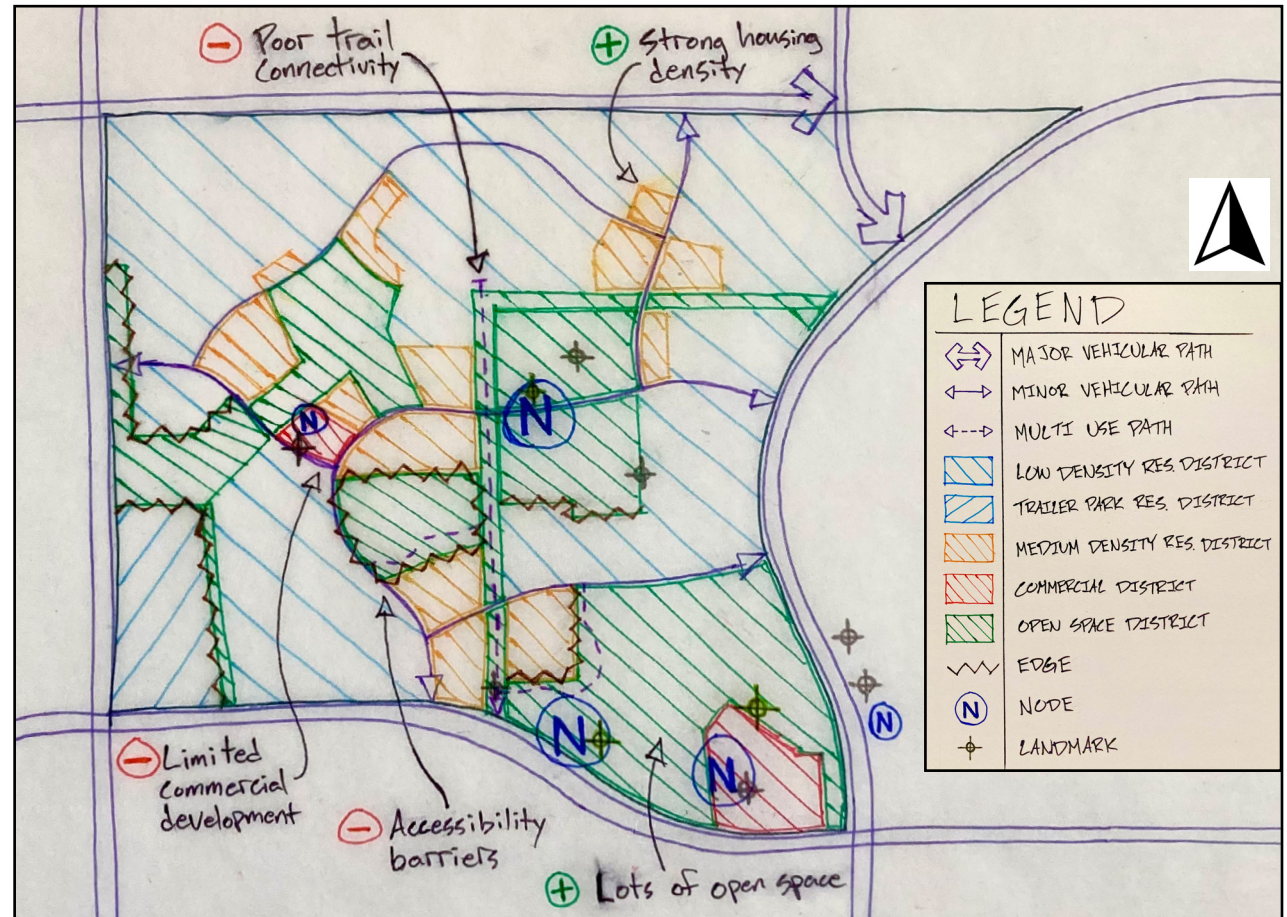 Poor trail
connectivity
Strong housing
density
N
N
N
N
N
Limited
commercial
development
Accessibility
barriers
Lots of open space
LEGEND
MAJOR VEHICULAR PATH
MINOR VEHICULAR PATH
MULTI USE PATH
LOW DENSITY RES. DISTRICT
TRAILER PARK RES. DISTRICT
MEDIUM DENSITY RES. DISTRICT
COMMERCIAL DISTRICT
OPEN SPACE DISTRICT
EDGE
N NODE
LANDMARK